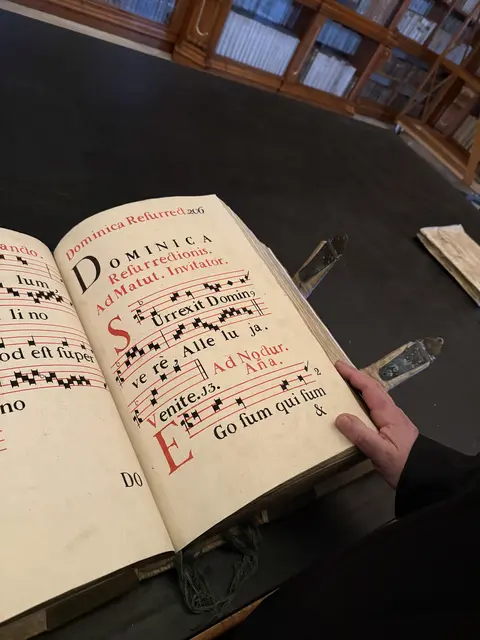 lum.
li no
od eſt ſuper
no
Do
Dominica Reſurrect. 206
DOMINICA
Reſurrectionis.
Ad Matut. Invitator.
SUrrexit Domin9
ve rè, Alle lu ja.
Venite. 13. Ad Noctur.
Ana.
EGo ſum qui ſum
&